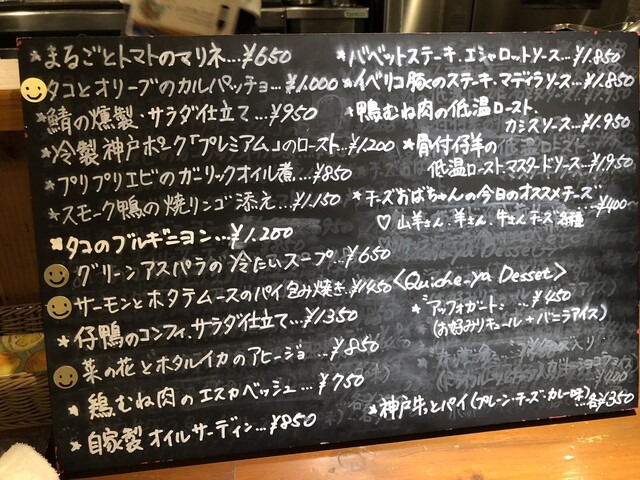 * まるごとトマトのマリネ…¥650
タコとオリーブのカルパッチョ…¥1.000
* 鯖の燻製・サラダ仕立て…¥950
* 冷製神戸ポーク「プレミアム」のロースト…¥1.200
* プリプリエビのガーリックオイル煮…¥850
* スモーク鴨の焼リンゴ添え…¥1.150
* タコのブルギニヨン…¥1.200
グリーンアスパラの冷たいスープ…¥650
サーモンとホタテムースのパイ包み焼き…¥1450
* 仔鴨のコンフィ.サラダ仕立て…¥1350
菜の花とホタルイカのアヒージョ…¥850
* 鶏むね肉のエスカベッシュ…¥750
* 自家製オイルサーディン…¥850
* バベットステーキ.エシャロットソース…¥1.850
* イベリコ豚のステーキ.マディラソース…¥1.850
* 鴨むね肉の低温ロースト.
カシスソース…¥1.950
* 骨付仔羊の
低温ロースト.マスタードソース…¥1,950
* チーズおばちゃんの今日のオススメチーズ
♡ 山羊さん.羊さん.牛さんチーズ各種 …¥400〜
<Quiche-ya Desset>
* アッフォガート…¥450
(お好みリキュール+バニラアイス)
* 神戸牛っとパイ(プレーン・チーズ・カレー味)…各¥350